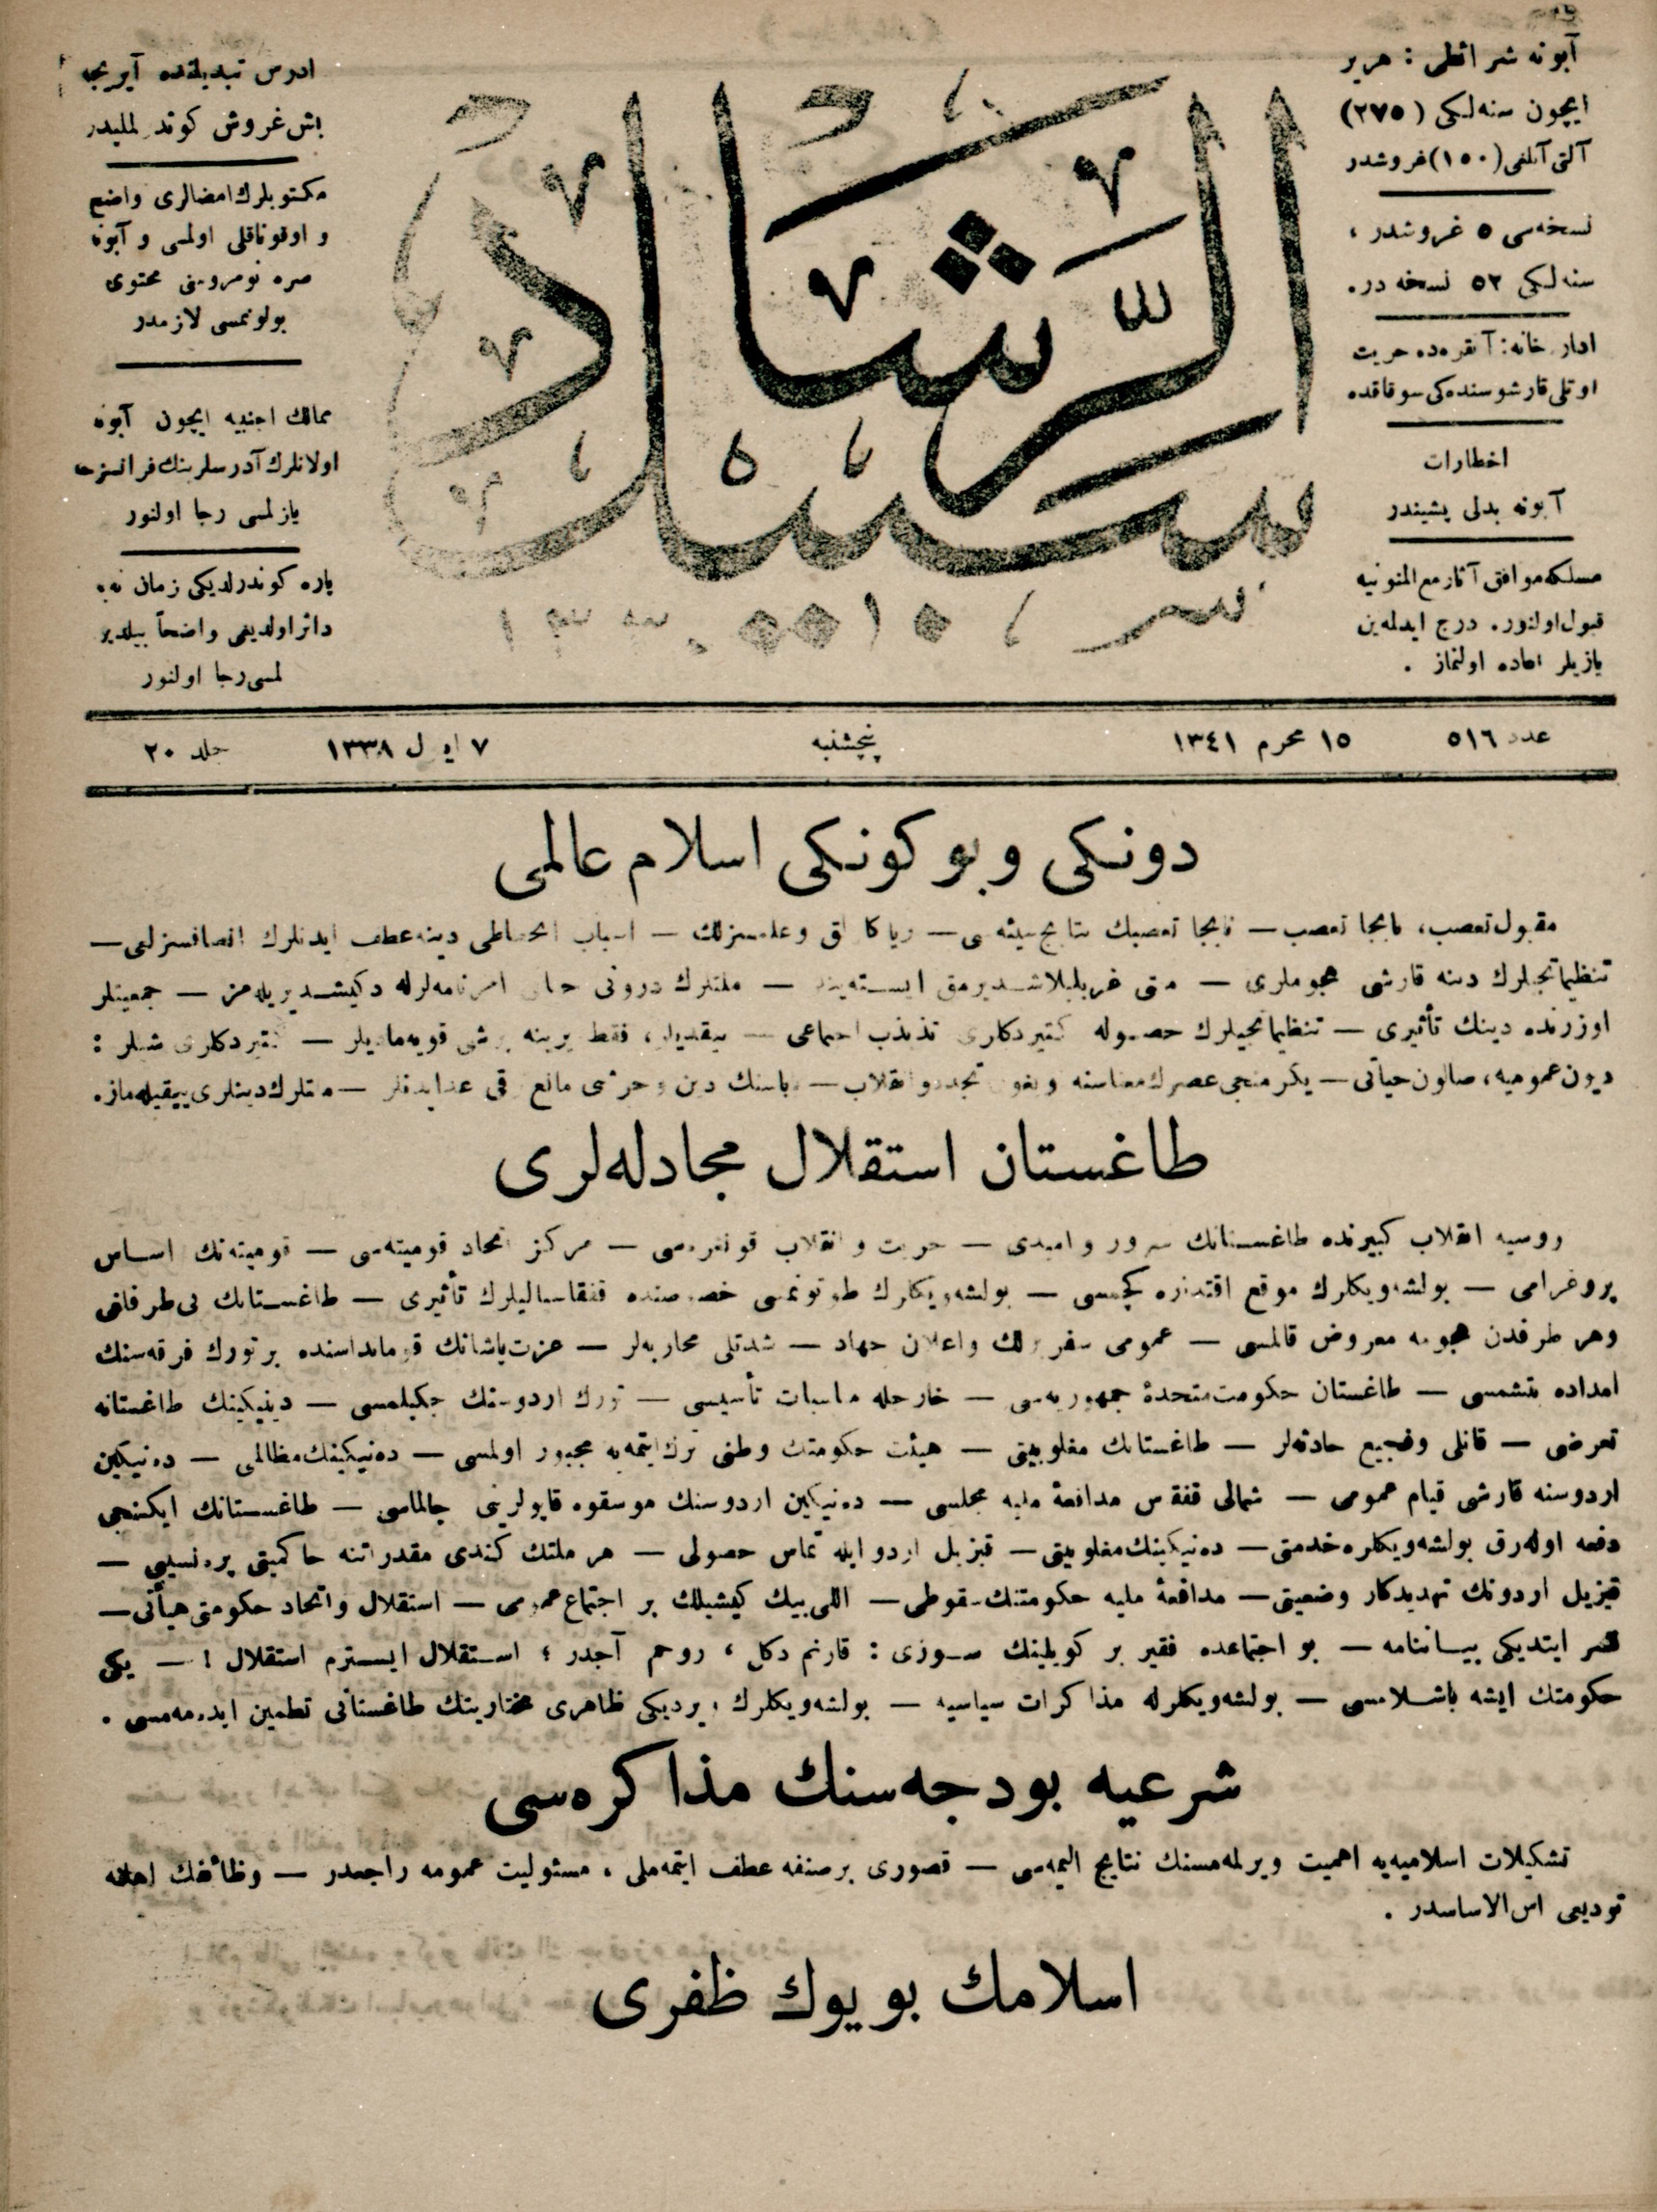 آبونه شرائطی : هر یر
ایچون سنه‌لکی (٢٧٥)
آلتی آیلغی (١٥٠) غروشدر
نسخه‌سی ٥ غروشدر ،
سنه‌لکی ٥٢ نسخه در .
اداره خانه : آنقره‌ده حریت
اوتلی قارشوسنده‌کی سوقاقده
اخطارات
آبونه بدلی پشیندر
مسلکه موافق آثار مع الممنونیه
قبول اولنور . درج ایدلمه‌ین
یازیلر اعاده اولنماز .
سبیل الرشاد
ادرس تبدیلنده آیریجه
بش غروش کوندرلملیدر
مکتوبلرك امضالری واضح
و اوقوناقلی اولمسی و آبونه
صره نومروسنی محتوی
بولونمسی لازمدر
ممالك اجنبیه ایچون آبونه
اولانلرك آدرسلرینك فرانسزجه
یازلمسی رجا اولنور
پاره کوندرلدیکی زمان نه‌یه
دائر اولدیغی واضحاً بیلدیر
لمسی رجا اولنور
عدد ٥١٦
١٥ محرم ١٣٤١
پنچشنبه
٧ ایلول ١٣٣٨
جلد ٢٠
دونکی و بو کونکی اسلام عالمی
مقبول تعصب، نابجا تعصب — نابجا تعصبك نتایج سیئه‌سی — ریاکارلق و علمسزلك — اسباب انحطاطی دینه عطف ایدنلرك انصافسزلغی —
تنظیماتجیلرك دینه قارشی هجوملری — ملتی غربلیلاشدیرمق ایسته‌ینلر — ملتلرك درونی حیاتی امرنامه‌لرله دکیشدیریله‌مز — جمعیتلر
اوزرنده دینك تأثیری — تنظیماتجیلرك حصوله کتیردکلری تذبذب اجتماعی — ییقدیلر، فقط یرینه برشی قویه‌مادیلر — کتیردکلری شیلر :
دیون عمومیه، صالون حیاتی — یکرمنجی عصرك معناسنه و تجدد و انقلاب — دین و حرثی مانع ترقی عد ایدنلر — ملتلرك دینلری ییقیله‌ماز .
طاغستان استقلال مجادله‌لری
روسیه انقلاب کبیرنده طاغستانك سرور و امیدی — حریت و انقلاب قونغره‌سی — مرکز اتحاد قومیته‌سی — قومیته‌نك اساس
پروغرامی — بولشه‌ویکلرك موقع اقتداره کچمسی — بولشه‌ویکلرك طوتونمسی خصوصنده قفقاسیالیلرك تأثیری — طاغستانك بی طرفلغی
وهر طرفدن هجومه معروض قالمسی — عمومی سفربرلك و اعلان جهاد — شدتلی محاربه‌لر — عزت پاشانك قومانداسنده بر تورك فرقه‌سنك
امداده یتشمسی — طاغستان حکومت متحدهٔ جمهوریه‌سی — خارجله مناسبات تأسیسی — تورك اردوسنك چکیلمسی — دینیکینك طاغستانه
تعرضی — قانلی و فجیع حادثه‌لر — طاغستانك مغلوبیتی — هیئت حکومتك وطنی ترك ایتمه‌یه مجبور اولمسی — ده‌نیکینك مظالمی — ده‌نیکین
اردوسنه قارشی قیام عمومی — شمالی قفقاس مدافعهٔ ملیه مجلسی — ده‌نیکین اردوسنك موسقوه قاپولرینی چالماسی — طاغستانك ایکنجی
دفعه اوله‌رق بولشه‌ویکلره خدمتی — ده‌نیکینك مغلوبیتی — قیزیل اردو ایله تماس حصولی — هر ملتك کندی مقدراتنه حاکمیتی پره‌نسیپی —
قیزیل اردونك تهدیدکار وضعیتی — مدافعهٔ ملیه حکومتنك سقوطی — اللی بیك کیشیلك بر اجتماع عمومی — استقلال و اتحاد حکومتی هیأتی —
نشر ایتدیکی بیاننامه — بو اجتماعده فقیر بر کویلینك سوزی : قارنم دکل ، روحم آجدر ؛ استقلال ایسترم استقلال ! — یکی
حکومتك ایشه باشلامسی — بولشه‌ویکلرله مذاکرات سیاسیه — بولشه‌ویکلرك ویردیکی ظاهری مختاریتك طاغستانی تطمین ایده‌مه‌مسی .
شرعیه بودجه‌سنك مذاکره‌سی
تشکیلات اسلامیه‌یه اهمیت ویرلمه‌مسنك نتایج الیمه‌سی — قصوری بر صنفه عطف ایتمه‌ملی ، مسئولیت عمومه راجعدر — وظائفك اهلنه
تودیعی اس الاساسدر .
اسلامك بویوك ظفری